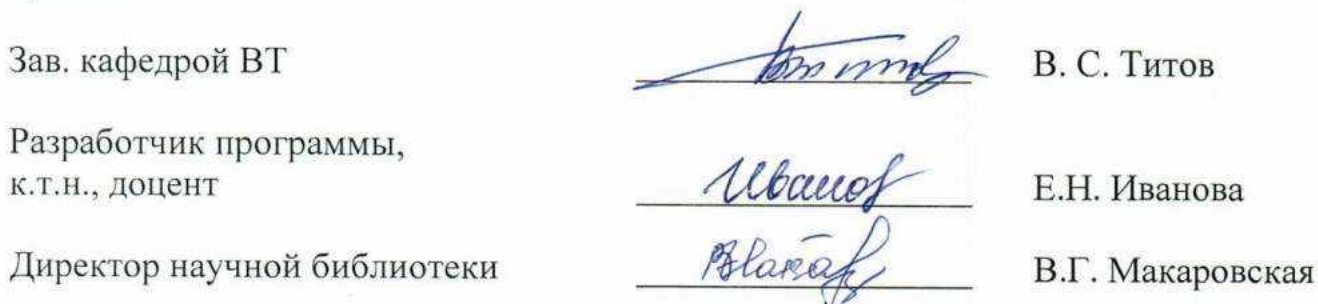 Зав. кафедрой ВТ В. С. Титов
Разработчик программы,
к.т.н., доцент Иванов Е.Н. Иванова
Директор научной библиотеки В.Г. Макаровская